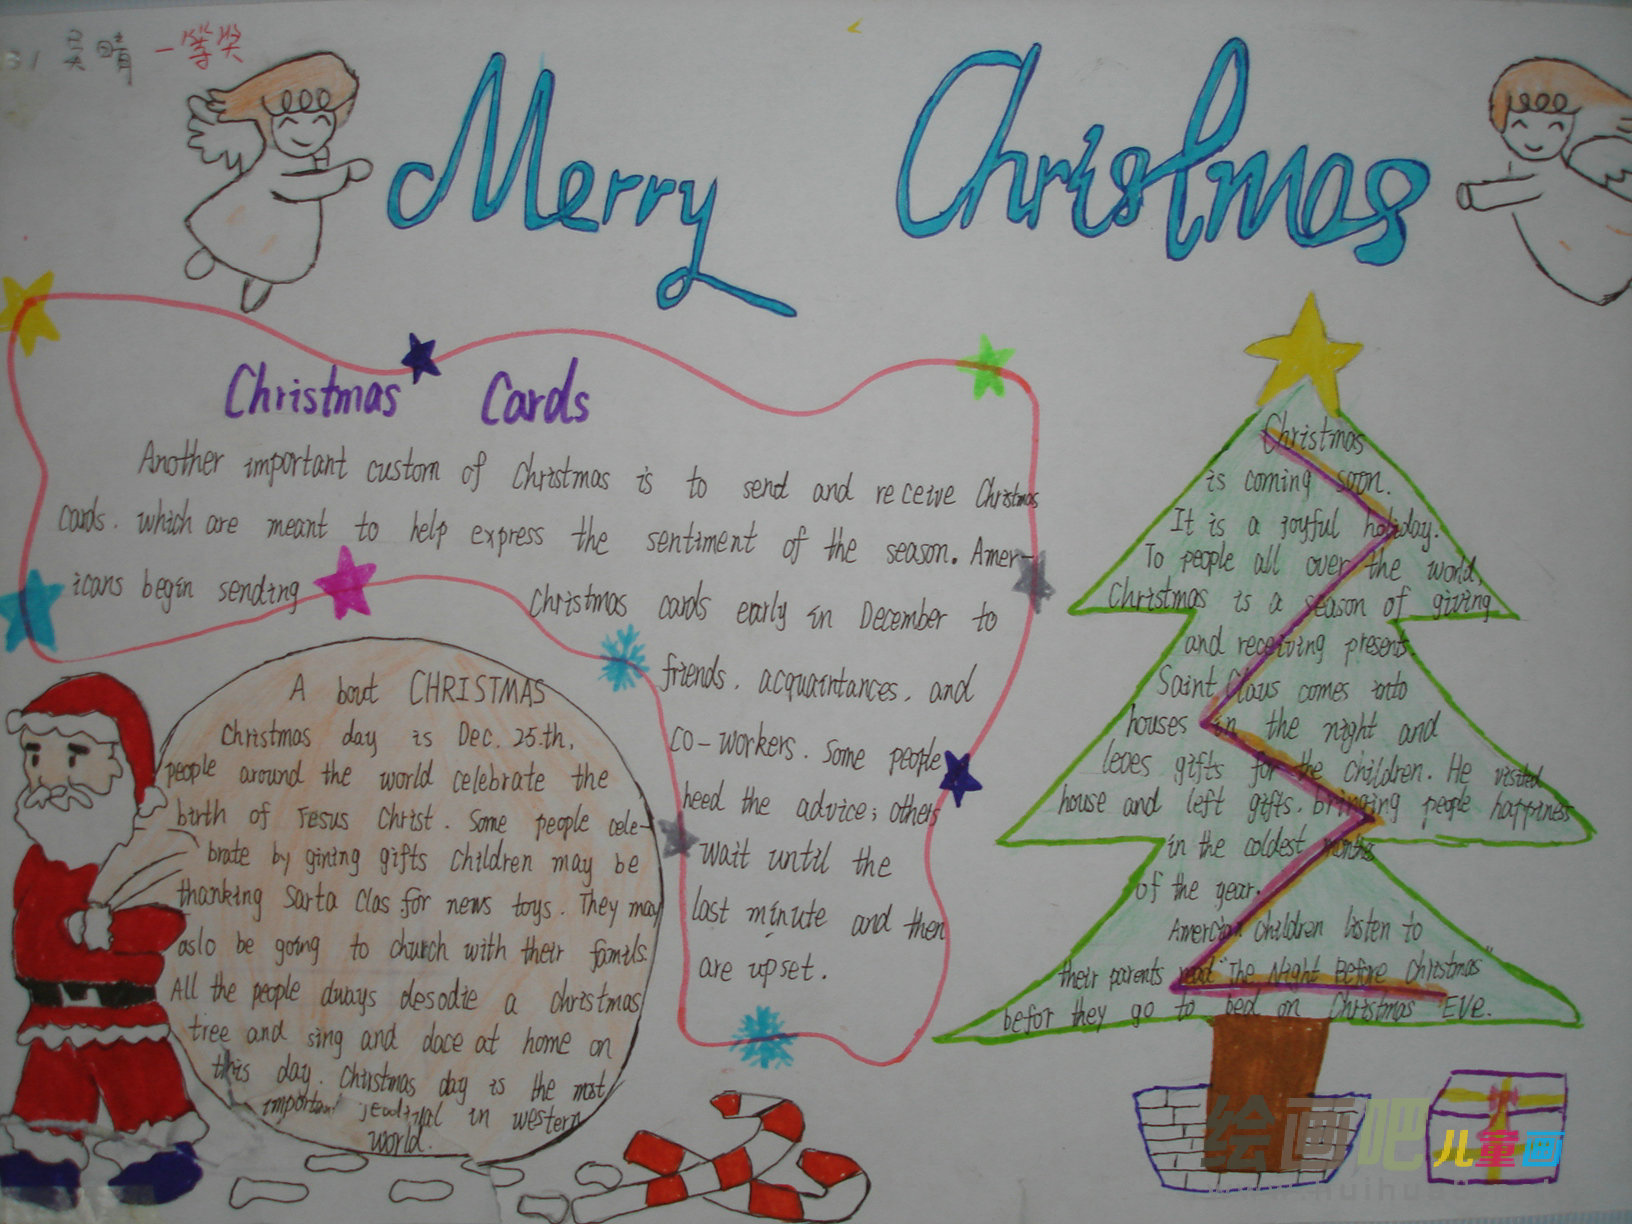 31 吴晴 一等奖
Merry Christmas
Christmas Cards
Another important custom of Christmas is to send and receive Christmas
cards. which are meant to help express the sentiment of the season. Amer-
icans begin sending Christmas cards early in December to
friends, acquaintances, and
co-workers. Some people
heed the advice; others
wait until the
last minute and then
are upset.
A bout CHRISTMAS
Christmas day is Dec. 25.th,
people around the world celebrate the
birth of Jesus Christ. Some people cele-
brate by gining gifts children may be
thanking Sarta Clas for news toys. They may
aslo be going to church with their famils.
All the people always desodie a christmas
tree and sing and dace at home on
this day. Christmas day is the most
important in western
world.
Christmas
is coming soon.
It is a joyful holiday.
To people all over the world,
Christmas is a season of giving
and receiving presents.
Saint Claus comes into
houses in the night and
leves gifts for the children. He visited
house and left gifts. bringing people happiness
in the coldest months
of the year.
Amercian children listen to
their parents read "The Night Before Christmas"
befor they go to bed on Christmas EVe.
绘画吧
儿童画